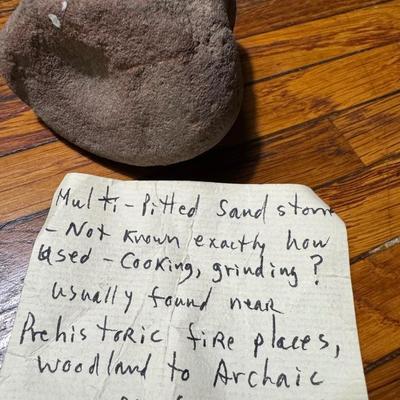 Multi-Pitted Sand stone
- Not known exactly how
used - Cooking, grinding?
usually found near
Prehistoric fire places,
woodland to Archaic